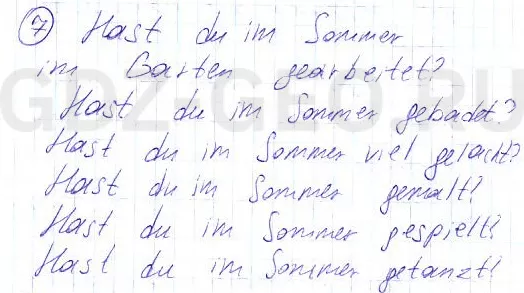 7 Hast du im Sommer
im Garten gearbeitet?
Hast du im Sommer gebadet?
Hast du im Sommer viel gelacht?
Hast du im Sommer gemalt?
Hast du im Sommer gespielt?
Hast du im Sommer getanzt?